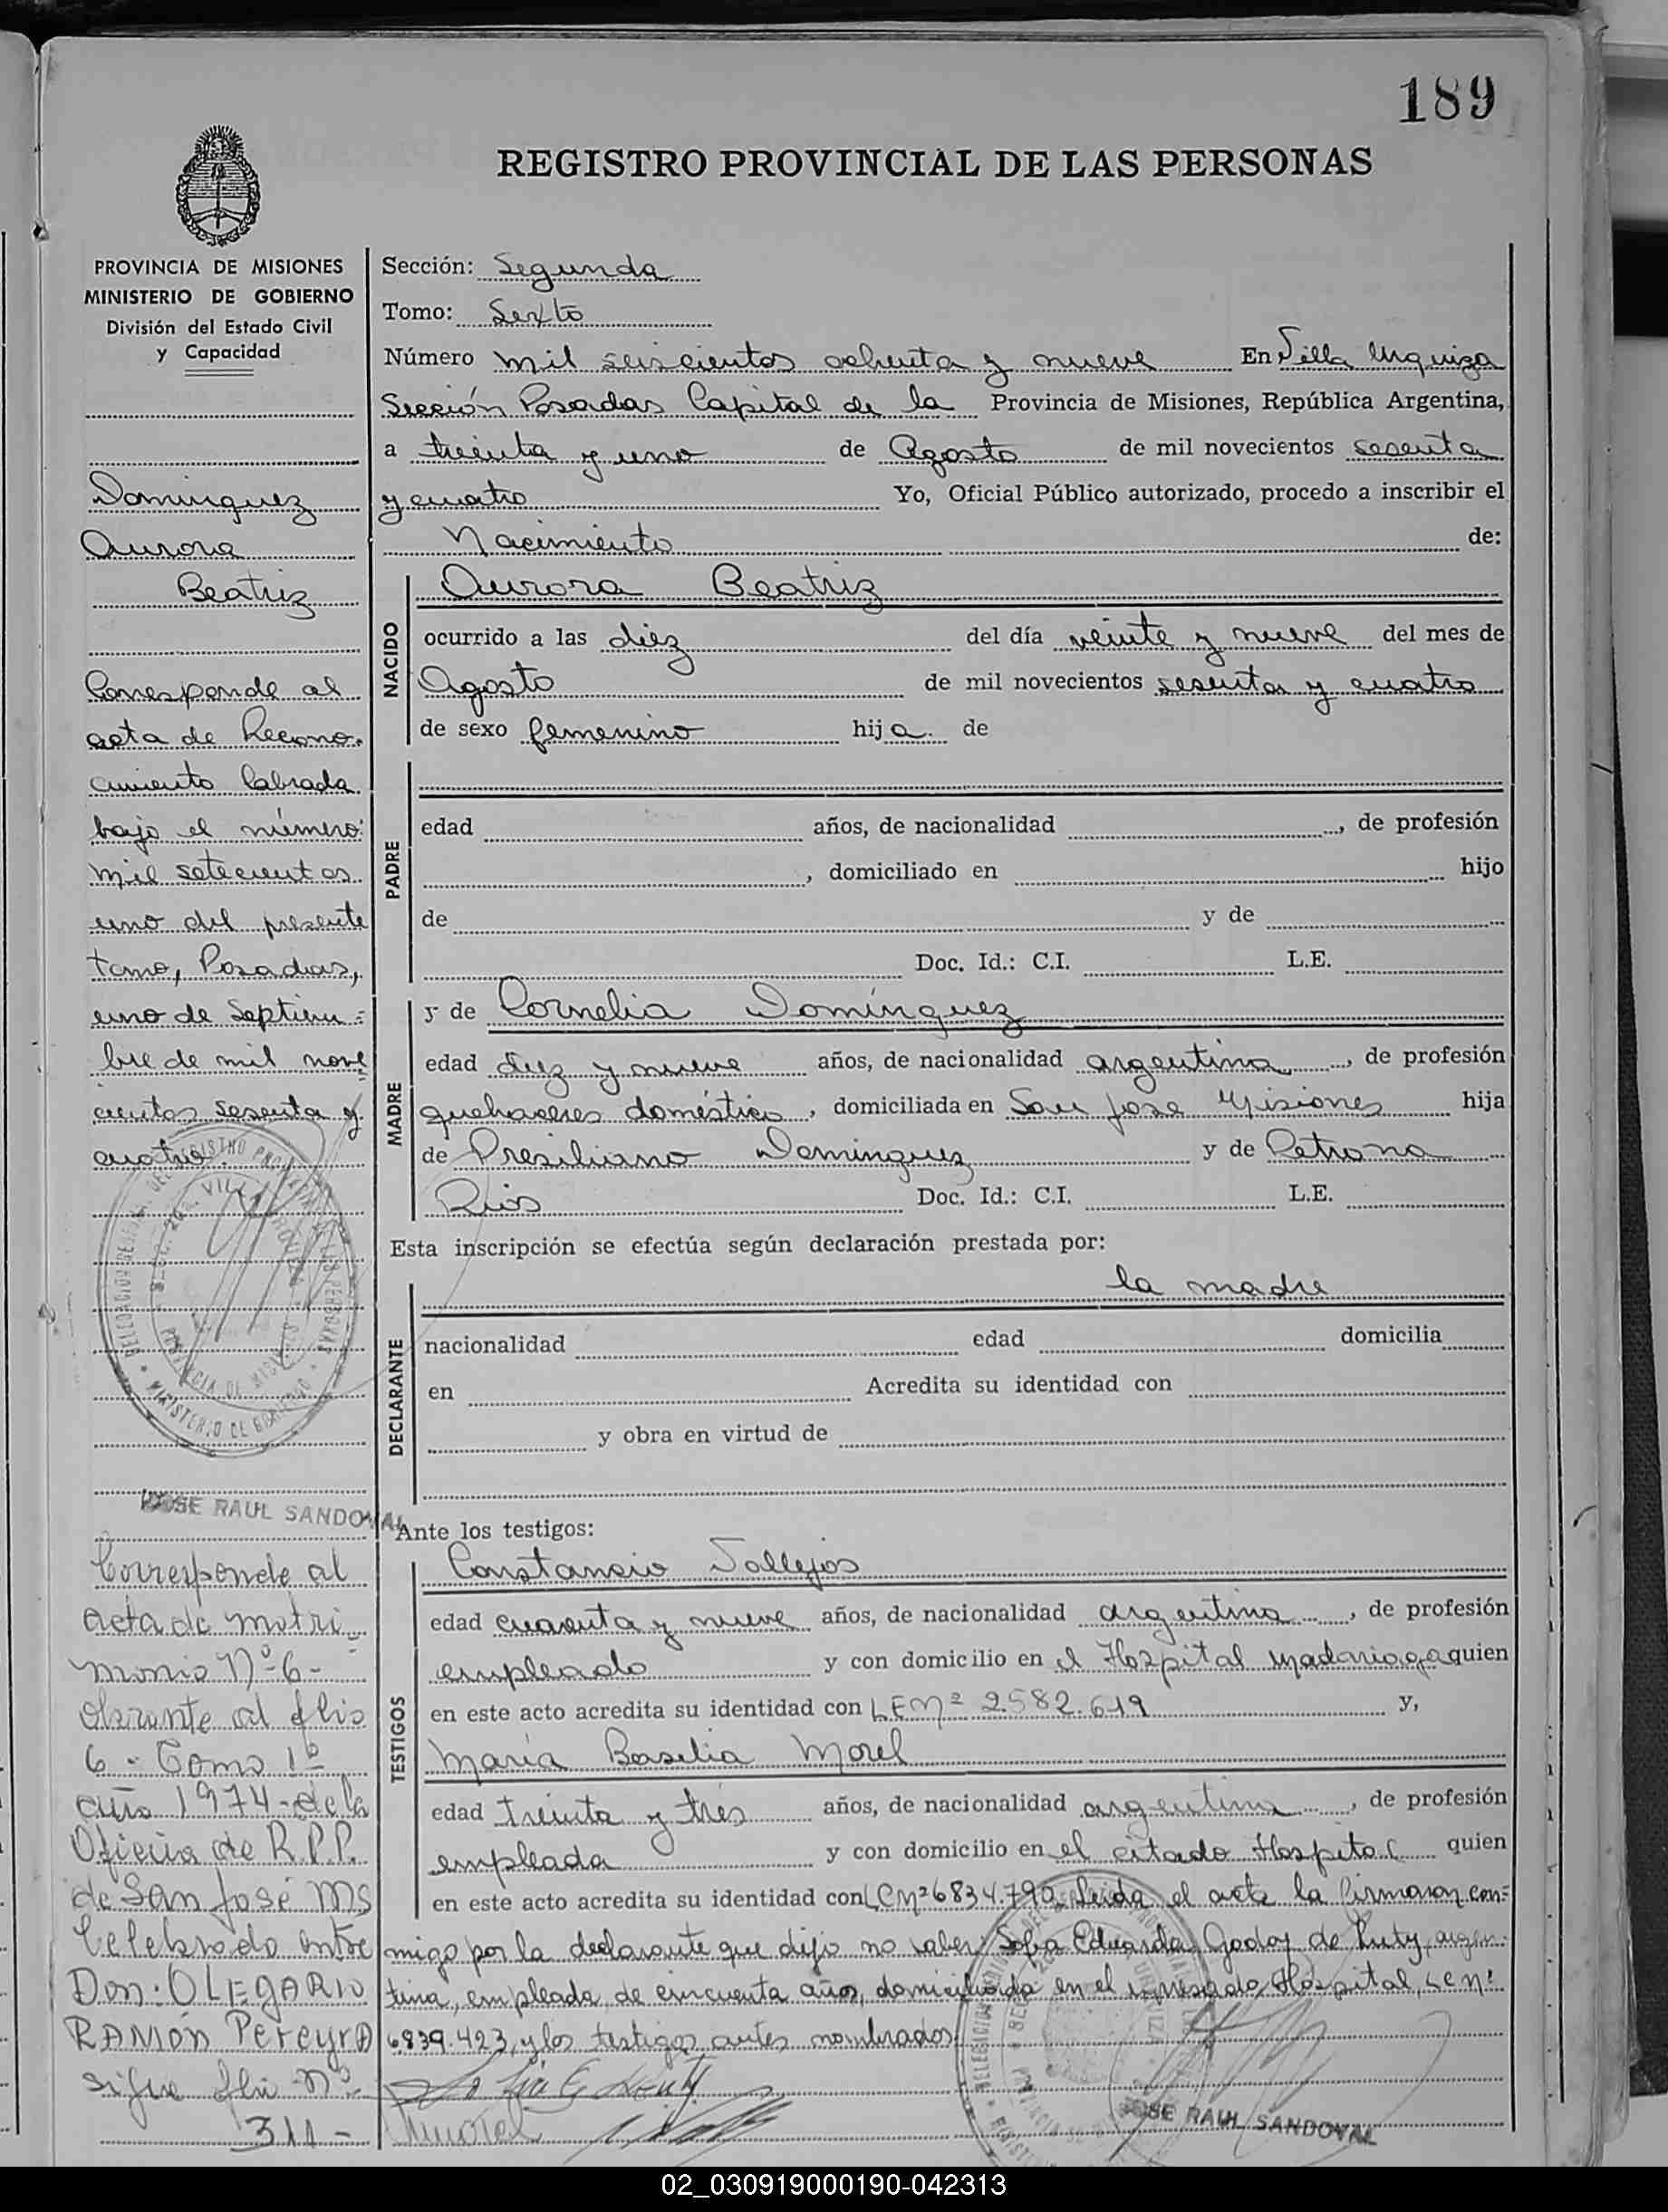 189
REGISTRO PROVINCIAL DE LAS PERSONAS
PROVINCIA DE MISIONES
MINISTERIO DE GOBIERNO
División del Estado Civil
y Capacidad
Dominguez
Aurora
Beatriz
Corresponde al
acta de Recono-
cimiento labrada
bajo el número:
mil setecientos
uno del presente
tomo, Posadas,
uno de Septiem=
bre de mil nove
cientos sesenta y
cuatro.
JOSE RAUL SANDOVAL
Corresponde al
acta de matri
monio Nº 6-
Obrante al folio
6 - Tomo 1º
año 1974 - de la
Oficina de R.P.P.
de San José Ms
Celebrado entre
Don: OLEGARIO
RAMÓN PereyrA
sigue folio Nº
311 -
Sección: Segunda
Tomo: Sexto
Número mil seiscientos ochenta y nueve En Villa Urquiza
Sección Posadas Capital de la Provincia de Misiones, República Argentina,
a treinta y uno de Agosto de mil novecientos sesenta
y cuatro Yo, Oficial Público autorizado, procedo a inscribir el
Nacimiento de:
NACIDO
Aurora Beatriz
ocurrido a las diez del día veinte y nueve del mes de
Agosto de mil novecientos sesenta y cuatro
de sexo femenino hija de
PADRE
edad años, de nacionalidad , de profesión
, domiciliado en hijo
de y de
Doc. Id.: C.I. L.E.
MADRE
y de Cornelia Domínguez
edad diez y nueve años, de nacionalidad argentina, de profesión
quehaceres domésticos, domiciliada en San Jose Misiones hija
de Presiliano Dominguez y de Petrona
Rios Doc. Id.: C.I. L.E.
Esta inscripción se efectúa según declaración prestada por:
DECLARANTE
la madre
nacionalidad edad domicilia
en Acredita su identidad con
y obra en virtud de
Ante los testigos:
TESTIGOS
Constancio Vallejos
edad cuarenta y nueve años, de nacionalidad argentina, de profesión
empleado y con domicilio en el Hospital Madariaga quien
en este acto acredita su identidad con L E Nº 2.582.619 y,
María Basilia Morel
edad treinta y tres años, de nacionalidad argentina, de profesión
empleada y con domicilio en el citado Hospital quien
en este acto acredita su identidad con LC Nº 6834.790. Leida el acta la firmaron con=
migo por la declarante que dijo no saber Sofia Eduarda Godoy de argen-
tina, empleada, de cincuenta años, domiciliada en el Hospital,
6.839.423, y los testigos antes nombrados.
JOSE RAUL SANDOVAL
02_030919000190-042313